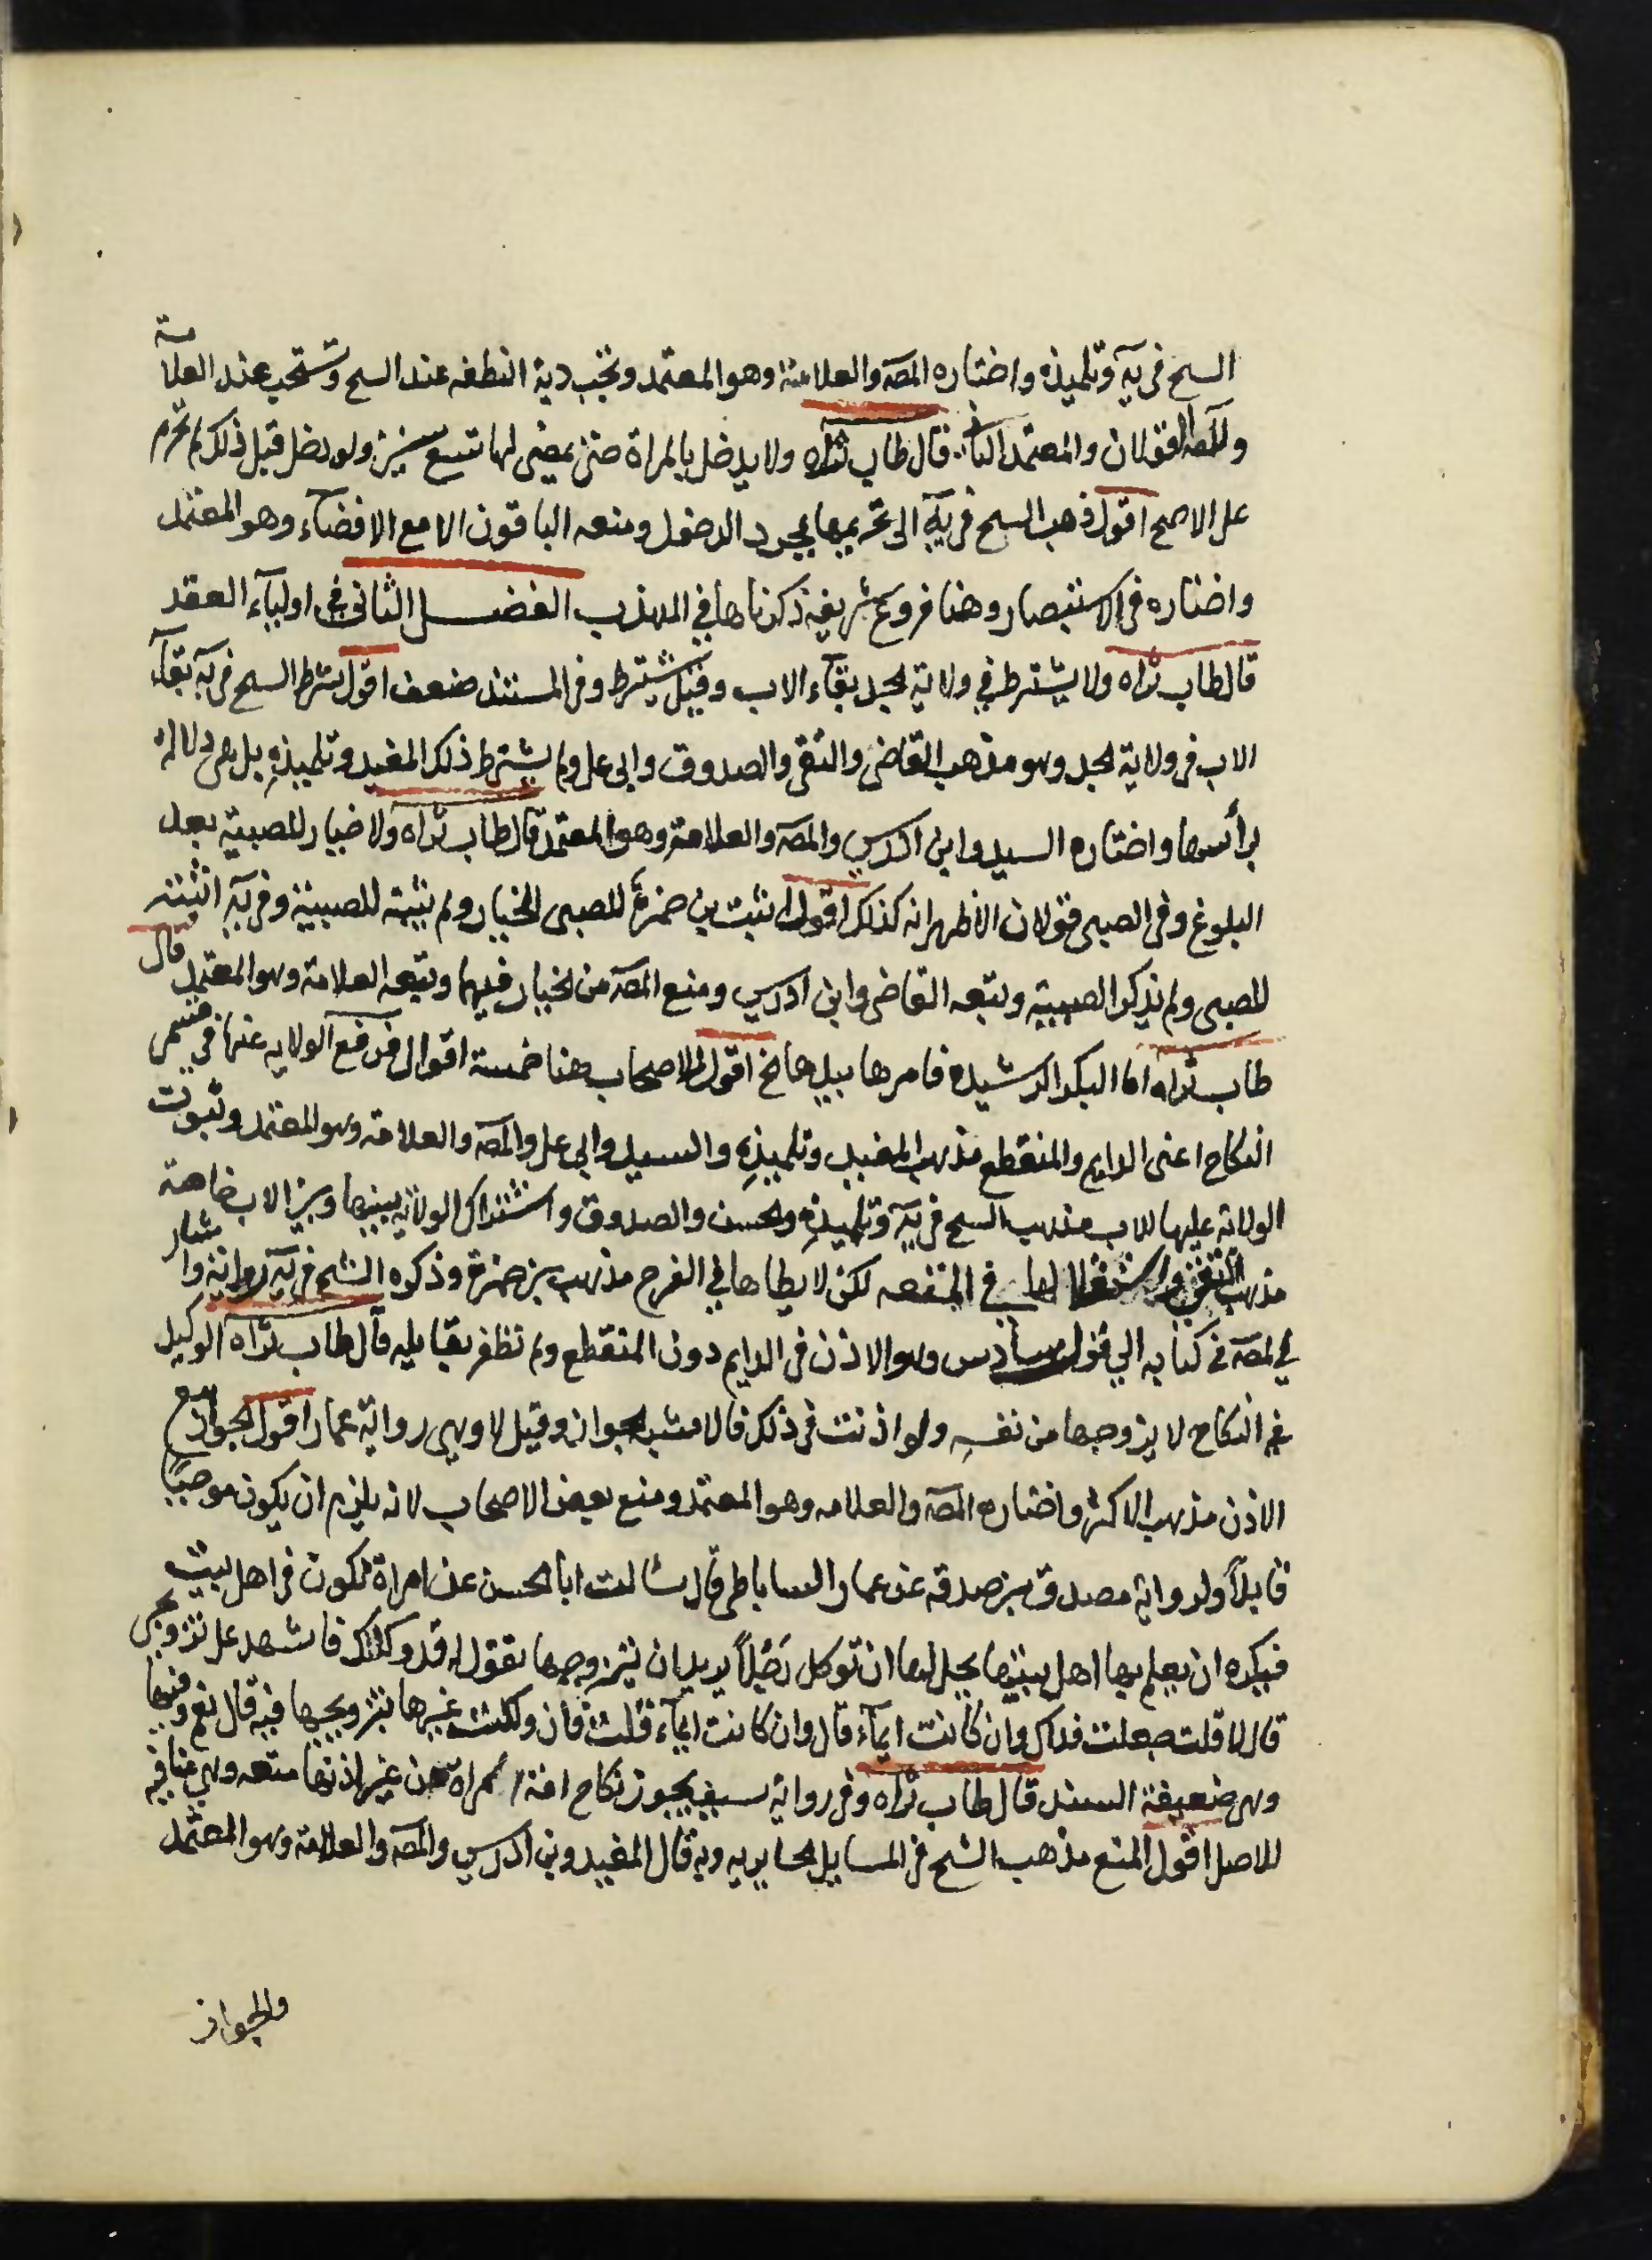 الشيخ في يه وتلميذه واختاره المصه والعلامة وهو المعتمد وتجب دية النطفه عند الشيخ وتستحب عند العلامة
وللمصه القولان والمعتمد الثاني قال طاب ثراه ولا يدخل بالمراة حتى يمضى لها تسع سنين ولو دخل قبل ذلك لم تحرم
على الاصح اقول ذهب الشيخ في يه الى تحريمها بمجرد الدخول ومنعه الباقون الا مع الافضاء وهو المعتمد
واختاره في الاستبصار وهنا فروع شريفة ذكرناها في المهذب الفصل الثاني في اولياء العقد
قال طاب ثراه ولا يشترط في ولاية الجد بقاء الاب وقيل يشترط وفي المستند ضعف اقول شرط الشيخ في يه بقاء
الاب في ولاية الجد وهو مذهب القاضي والتقي والصدوق وابي على ولم يشترط ذلك المفيد وتلميذه بل هى دلالة
برأسها واختاره السيد وابن ادريس والمصه والعلامة وهو المعتمد قال طاب ثراه ولا خيار للصبية بعد
البلوغ وفي الصبى قولان الاظهر انه كذلك اقول اثبت بن حمزة للصبى الخيار ولم يثبته للصبية وفي يه اثبته
للصبى ولم يذكر الصبية وتبعه القاضي وابن ادريس ومنع المصه من الخيار فيهما وتبعه العلامة وهو المعتمد قال
طاب ثراه اما البكر الرشيدة فامرها بيدها الخ اقول للاصحاب هنا خمسة اقوال فرفع الولاية عنها في قسمى
النكاح اعنى الدايم والمنقطع مذهب المفيد وتلميذه والسيد وابي على والمصه والعلامة وهو المعتمد وثبوت
الولاية عليها للاب مذهب الشيخ في يه وتلميذه والحسن والصدوق واشتراك الولاية بينها وبين الاب خاصة
مذهب التقي واستقلالها في المتعه لكن لا يطاها في الفرج مذهب بن حمزة وذكره الشيخ في يه رواية واشار
المصه في كتابه الي قول سادس وهو الاذن في الدايم دون المنقطع ولم نظفر بقايله قال طاب ثراه الوكيل
في النكاح لا يزوجها من نفسه ولو اذنت في ذلك فالاشبه الجواز وقيل لا وهي رواية عمار اقول الجواز مع
الاذن مذهب الاكثر واختاره المصه والعلامه وهو المعتمد ومنع بعض الاصحاب لانه يلزم ان يكون موجبًا
قابلاً ولرواية مصدق بن صدقه عن عمار الساباطى قال سالت ابا الحسن عن امراة تكون في اهل بيت
فيكره ان يعلم بها اهل بيتها يحل لها ان توكل رجلاً يريد ان يتزوجها تقول له قد وكلتك فاشهد على تزويجى
قال لا قلت جعلت فداك وان كانت ايماً قال وان كانت ايماً قلت فان وكلت غيرها بتزويجها فيه قال نعم وفيها
وهي ضعيفة السند قال طاب ثراه وفي رواية سيف يجوز نكاح امة المراة من غير اذنها متعه وهي منافية
للاصل اقول المنع مذهب الشيخ في المسايل الحايرية وبه قال المفيد وبن ادريس والمصه والعلامة وهو المعتمد
والجواز